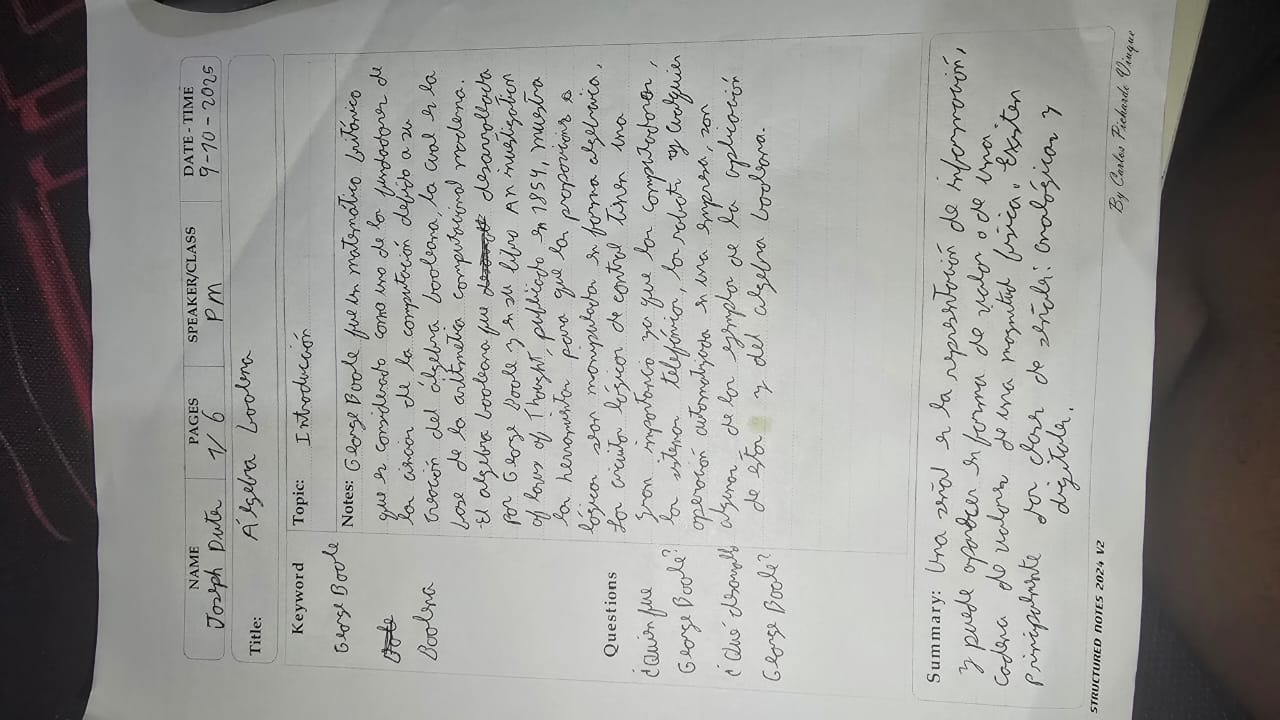 NAME
PAGES
SPEAKER/CLASS
DATE - TIME
Joseph
1/6
PM
9-10-2025
Title: Álgebra boolena
Keyword
Topic: Introducción
George Boole
Boolena
Notes: George Boole fue un matemático británico
que es considerado como uno de lo fundadores de
las ciencias de la computación debido a su
creación del álgebra booleana, la cual es la
base de la aritmética computacional moderna.
El algebra booleana fue desarrollada
por George Boole y en su libro An investigation
of laws of Thought, publicado en 1854, muestra
las herramientas para que las proposiciones
lógicas sean manipuladas en forma algebraica,
Los circuitos lógicos de control tienen una
gran importancia ya que los computadores,
los sistemas telefónicos, los robots y cualquier
operación automatizada en una empresa, son
algunos de los ejemplos de la aplicación
de estos y del algebra booleana.
Questions
¿Quien fue
George Boole?
¿Qué desarrolló
George Boole?
Summary: Una señal es la representación de información,
y puede aparecer en forma de valor o de una
cadena de valores de una magnitud física. Existen
principalmente dos clases de señales: analógicas y
digitales.
STRUCTURED NOTES 2024 V2
By Carlos Pichardo Viuque